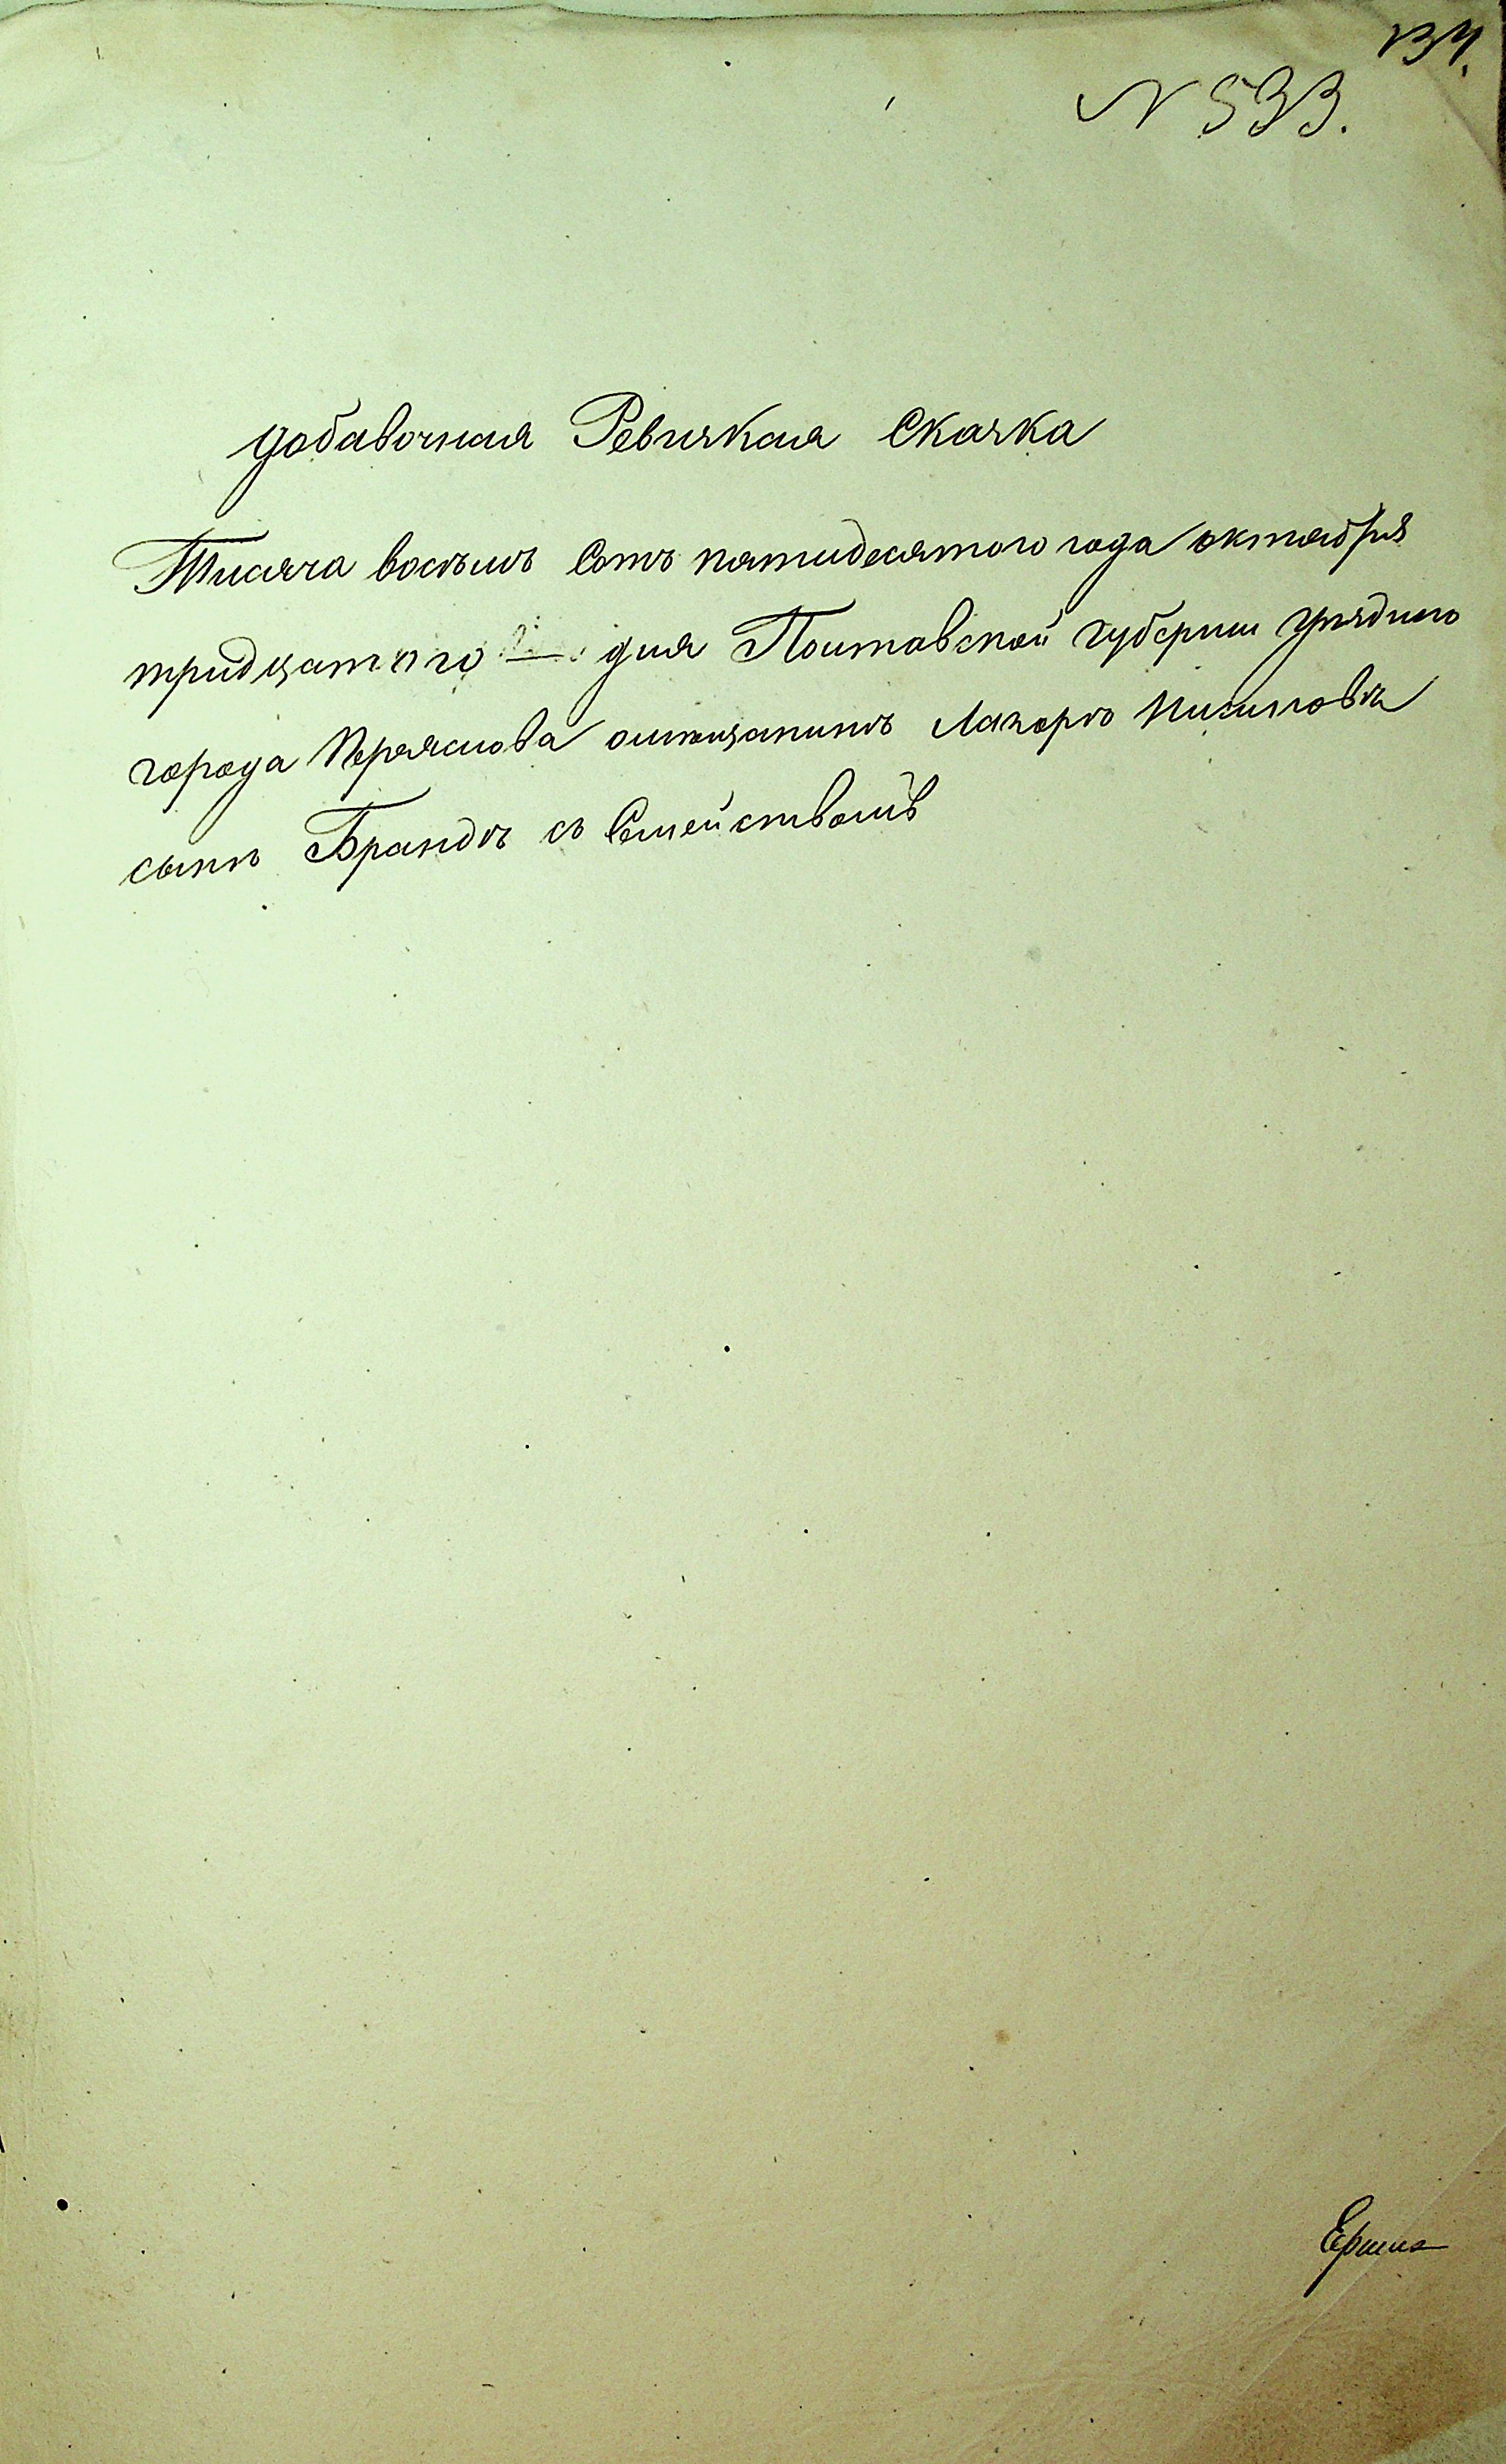 134.
N 533.
добавочная Ревизкая Сказка
Тисяча восемъ Сотъ пятидесятого года октября
тридцатого — дня Полтавской губернии уезднего
города Переяслова мещанинъ Лазоръ
сынъ Брандъ съ Семействомъ